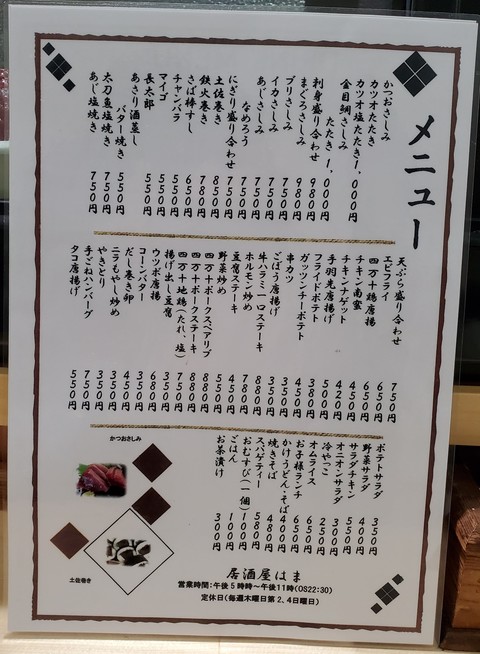 メニュー
かつおさしみ
カツオたたき
カツオ塩たたき 1,000円
金目鯛さしみ
たたき 1,000円
刺身盛り合わせ 980円
まぐろさしみ 980円
ブリさしみ 750円
イカさしみ 750円
あじさしみ 750円
なめろう 750円
にぎり盛り合わせ 750円
土佐巻き 850円
鉄火巻き 780円
さば棒すし 650円
チャンバラ 550円
マイゴ 550円
長太郎 550円
あさり酒蒸し
バター焼き 550円
太刀魚塩焼き 750円
あじ塩焼き 750円
天ぷら盛り合わせ 750円
エビフライ 650円
四万十鶏唐揚 650円
チキン南蛮 650円
チキンナゲット 420円
手羽先唐揚げ 450円
フライドポテト 380円
ガッツンチーポテト 500円
串カツ 450円
ごぼう唐揚げ 350円
牛ハラミ一口ステーキ 880円
ホルモン炒め 780円
豆腐ステーキ 450円
野菜炒め 550円
四万十ポークスペアリブ 880円
四万十ポークステーキ 880円
四万十地鶏(たれ、塩) 750円
揚げ出し豆腐 350円
ウツボ唐揚 680円
コーンバター 350円
だし巻き卵 450円
ニラもやし炒め 350円
やきとり 350円
手ごねハンバーグ 750円
タコ唐揚げ 550円
ポテトサラダ 350円
野菜サラダ 400円
サラダチキン 550円
オニオンサラダ 300円
冷やっこ 250円
オムライス 650円
お子様ランチ 650円
かけうどん・そば 400円
焼きそば 480円
スパゲティー 580円
おむすび(一個) 100円
ごはん 100円
お茶漬け 300円
かつおさしみ
土佐巻き
居酒屋はま
営業時間:午後5時時~午後11時(OS22:30)
定休日(毎週木曜日第2、4日曜日)